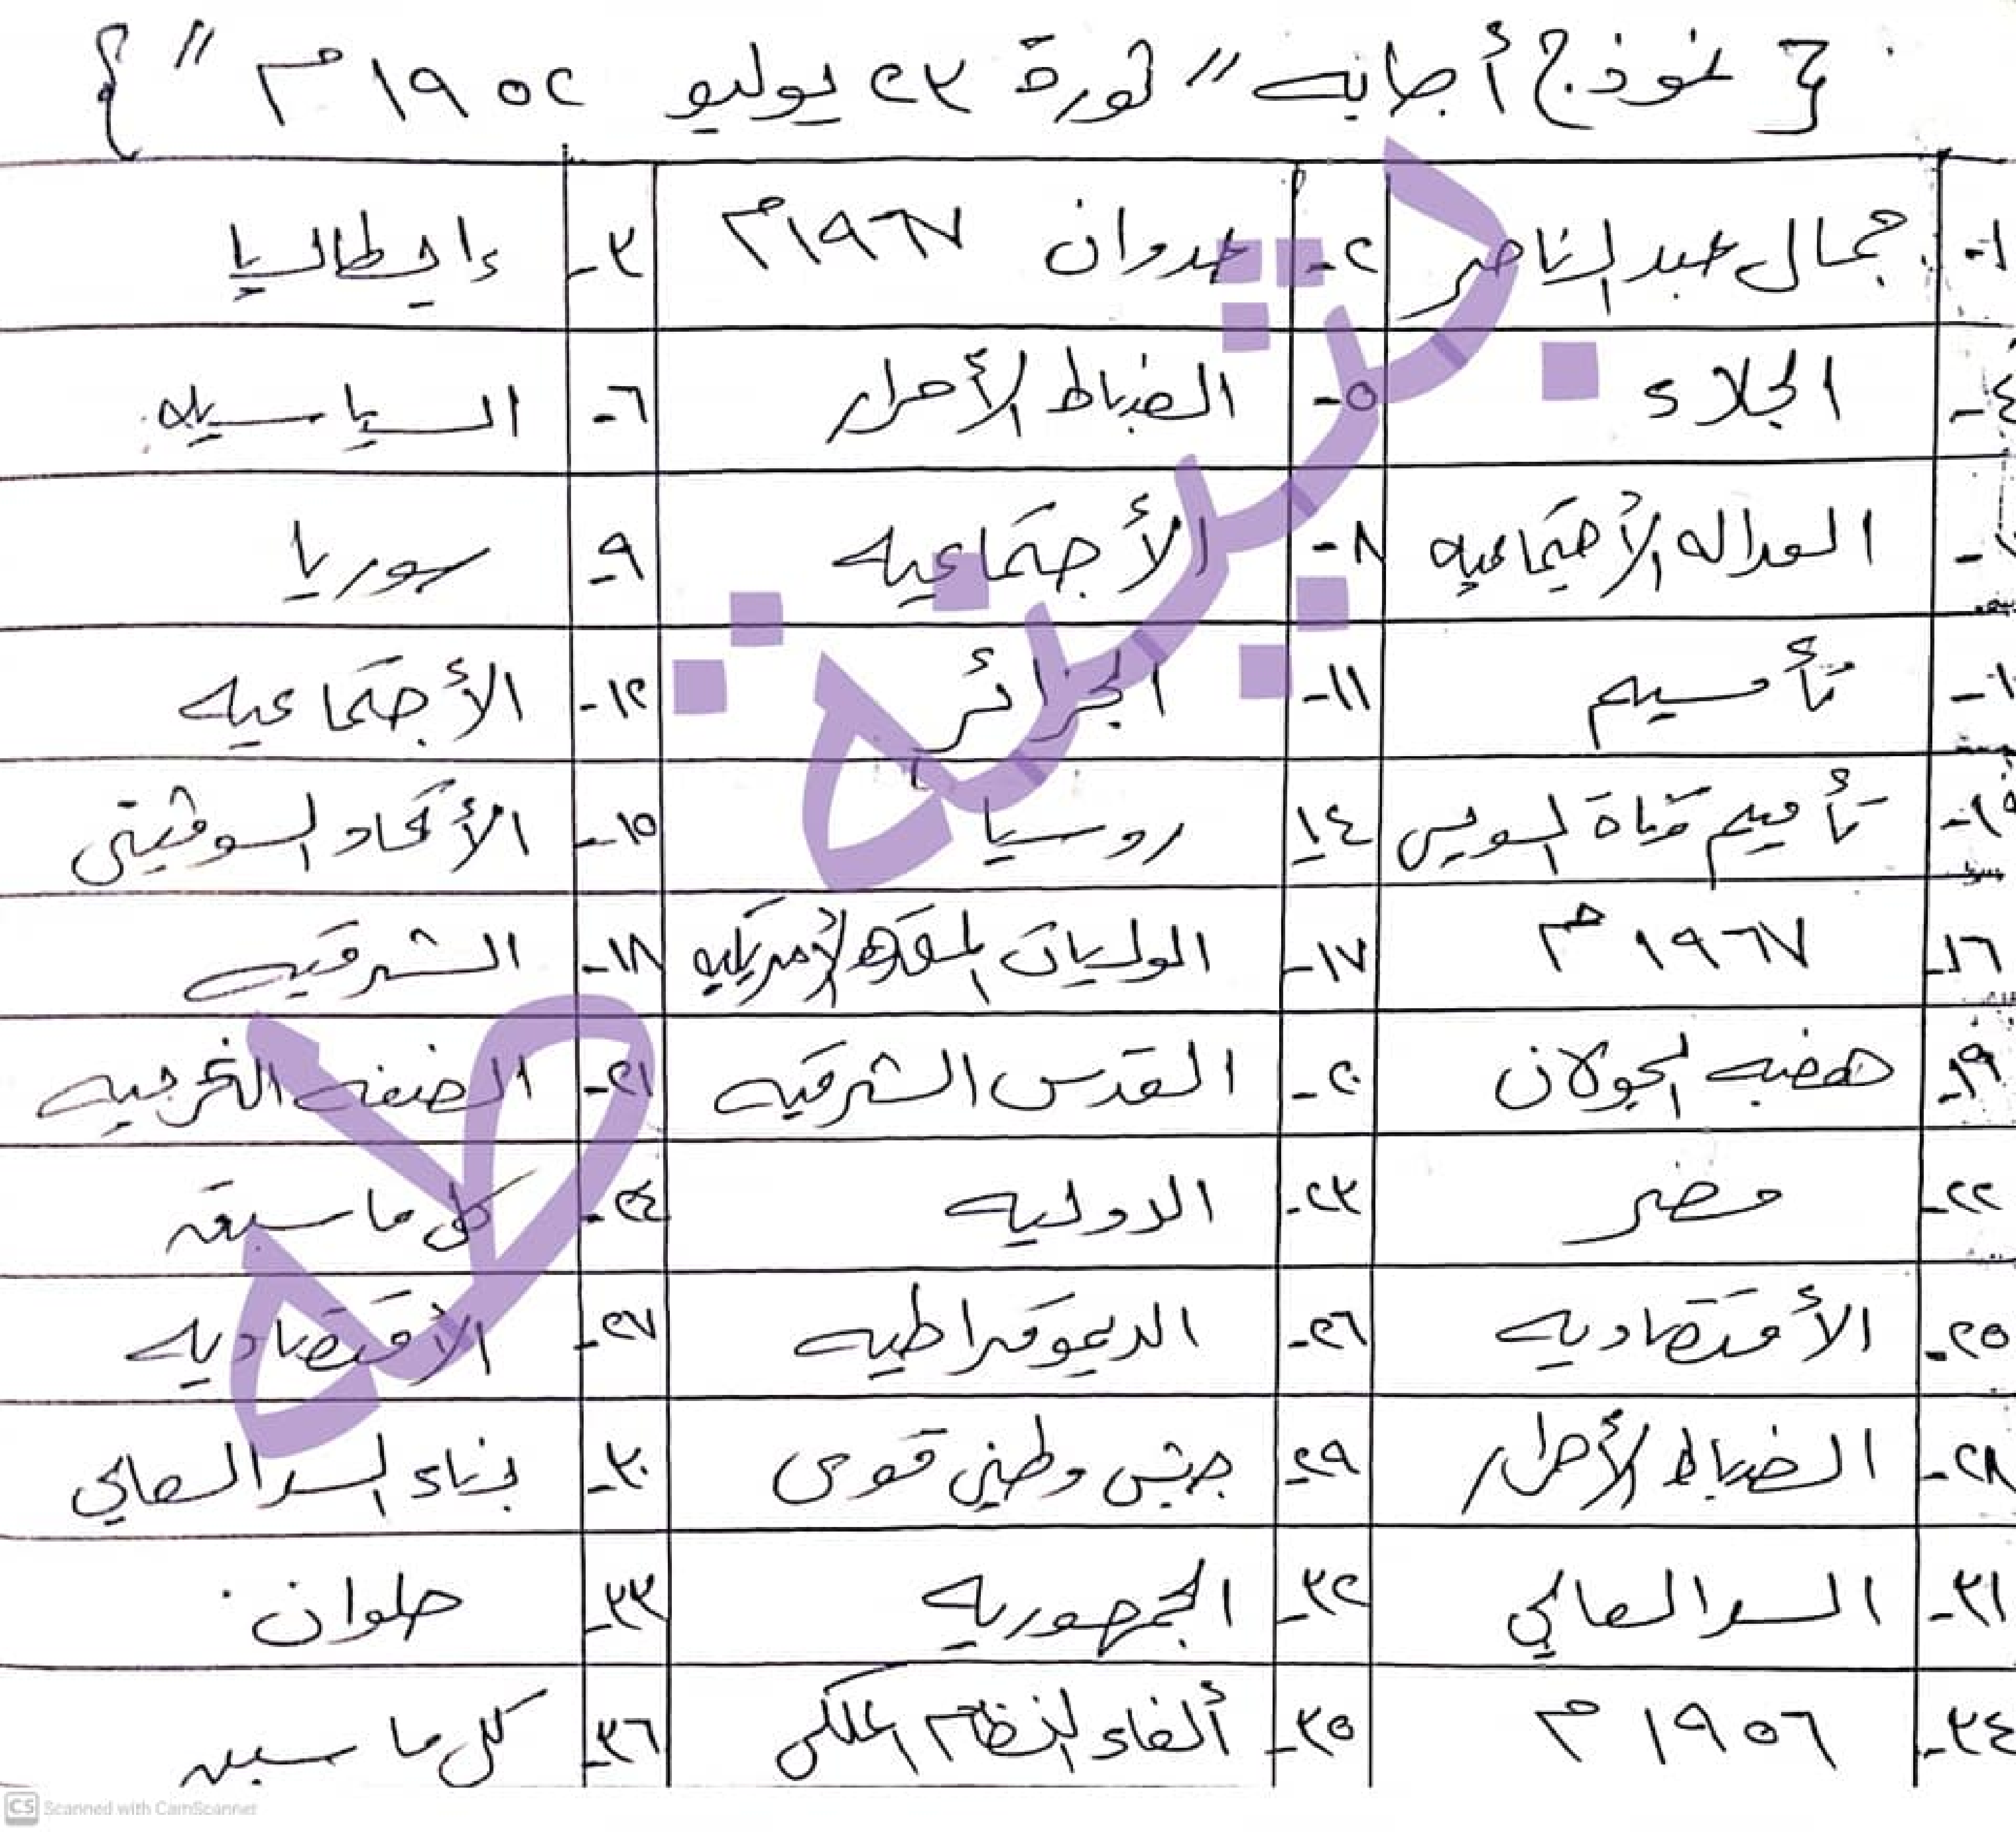 { نموذج أجابه " ثورة ٢٣ يوليو ١٩٥٢ م " }
١- جمال عبد الناصر ٢- عدوان ١٩٦٧م ٣- إيطاليا
٤- الجلاء ٥- الضباط الأحرار ٦- السياسيه
٧- العداله الأجتماعيه ٨- الأجتماعيه ٩- سوريا
١٠- تأميم ١١- الجزائر ١٢- الأجتماعيه
١٣- تأميم قناة السويس ١٤- روسيا ١٥- الأتحاد السوفيتى
١٦- ١٩٦٧ م ١٧- الولايات المتحده الأمريكيه ١٨- الشرقيه
١٩- هضبه الجولان ٢٠- القدس الشرقيه ٢١- الضفه الغربيه
٢٢- مصر ٢٣- الدوليه ٢٤- كل ما سبق
٢٥- الأقتصاديه ٢٦- الديموقراطيه ٢٧- الأقتصاديه
٢٨- الضباط الأحرار ٢٩- جيش وطنى قوى ٣٠- بناء السد العالي
٣١- السد العالي ٣٢- الجمهوريه ٣٣- حلوان
٣٤- ١٩٥٦ م ٣٥- ألغاء النظام الملكى ٣٦- كل ما سبق
CS Scanned with CamScanner